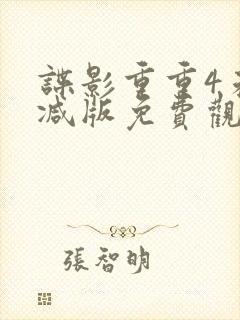 諜影重重4
减版免費觀
張智明